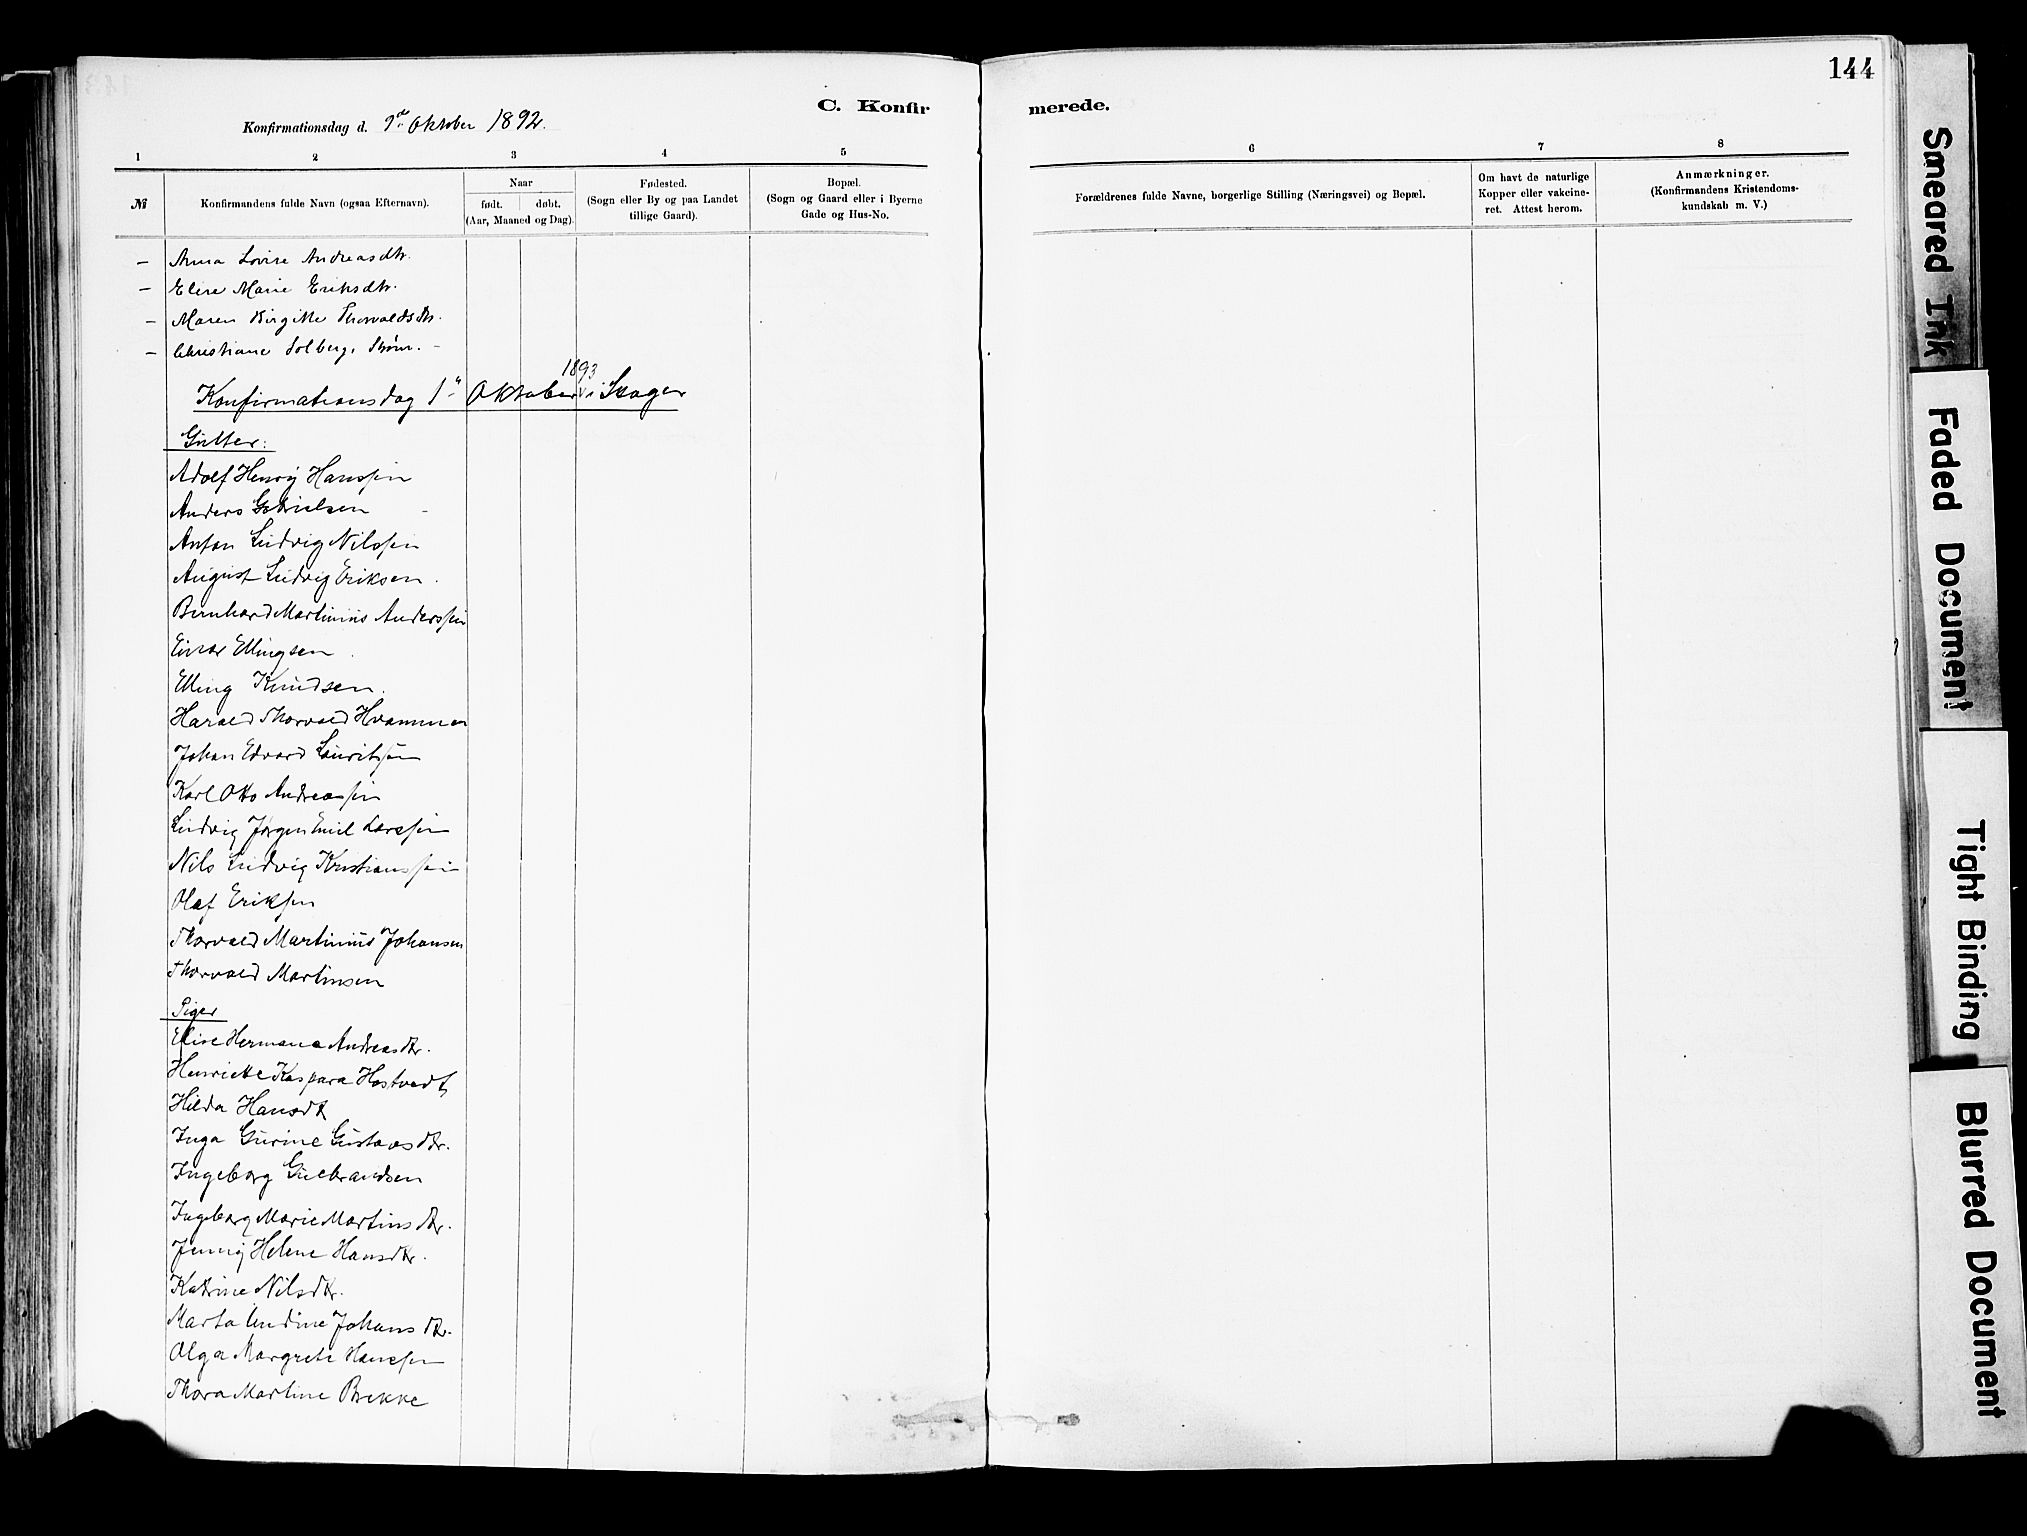 144
C. Konfir merede.
Konfirmationsdag d. 9de Oktober 1892.
1 2 3 4 5 6 7 8
№
Konfirmandens fulde Navn (ogsaa Efternavn).
Naar
født. døbt.
(Aar, Maaned og Dag).
Fødested.
(Sogn eller By og paa Landet
tillige Gaard).
Bopæl.
(Sogn og Gaard eller i Byerne
Gade og Hus-No.
Forældrenes fulde Navne, borgerlige Stilling (Næringsvei) og Bopæl.
Om havt de naturlige
Kopper eller vakcine-
ret. Attest herom.
Anmærkninger.
(Konfirmandens Kristendoms-
kundskab m. V.)
– Anna Lovise Andreasdtr.
– Elise Marie Eriksdtr.
– Maren Birgitte Thorvaldsdtr.
– Christiane Solberg, Strøm. –
1893
Konfirmationsdag 1ste Oktober i Skoger
Gutter:
Adolf Henry Hanssen
Anders Gabrielsen –
Anton Ludvig Nilssen
August Ludvig Eriksen.
Bernhard Martinius Anderssen
Einar Ellingsen.
Elling Knudsen.
Harald Thorvald Hvammen
Johan Edvard Lauritssen
Karl Otto Andreassen
Ludvig Jørgen Emil Larssen
Nils Ludvig Kristianssen
Olaf Erikssen
Thorvald Martinius Johansen
Thorvald Martinsen
Piger
Elise Hermana Andreasdtr.
Henriette Kaspara Hostvedt
Hilda Hansdt
Inga Gurine Gustavsdtr.
Ingeborg Gulbrandsen
Ingeborg Marie Martinsdtr.
Jenny Helene Hansdtr.
Katrine Nilsdtr.
Marta Undine Johansdtr.
Olga Margrete Hanssen
Thora Martine Brekke
Smeared Ink
Faded Document
Tight Binding
Blurred Document